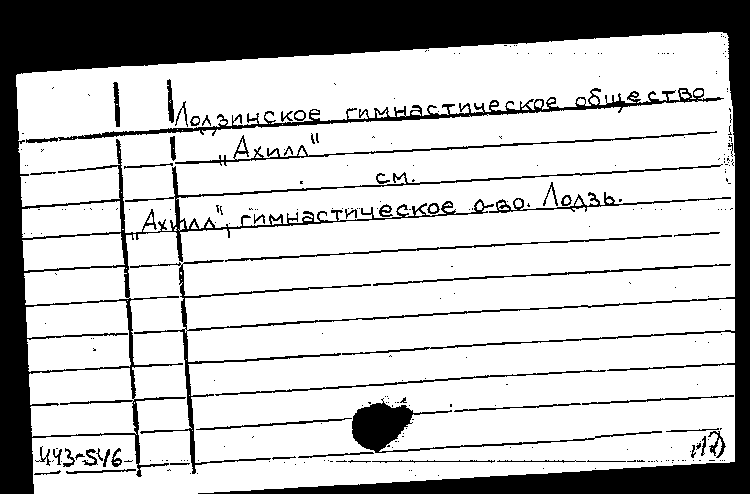 Лодзинское гимнастическое общество
„Ахилл"
см.
„Ахилл", гимнастическое о-во. Лодзь.
493-546